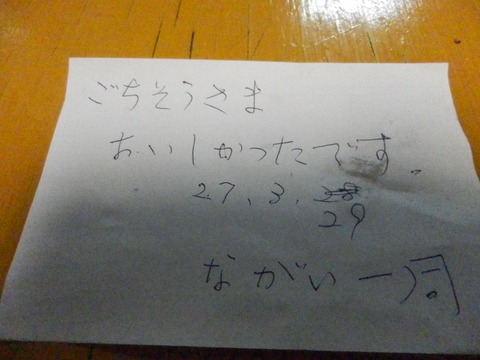 ごちそうさま
おいしかったです。
27、3、28
29
ながい一同